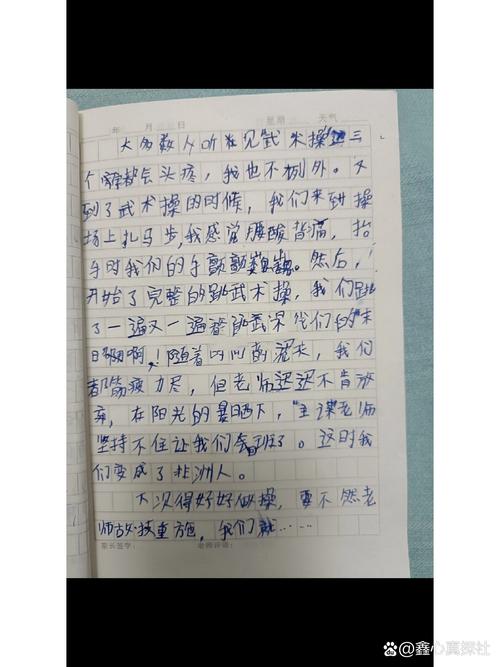 年 月 日 星期 天气
大多数人听见武术操这三
个字都会头疼，我也不例外。又
到了武术操的时候，我们来到操
场上扎马步，我感觉腰酸背痛，抬
手时我们的手颤颤巍巍。然后，
开始了完整的跳武术操，我们跳
了一遍又一遍
日 啊！随着时间的 ，我们
都筋疲力尽，但老师迟迟不肯放
弃，在阳光的暴晒下，主课老师
坚持不住让我们回班了。这时我
们变成了非洲人。
下次得好好做操，要不然老
师故技重施，我们就……
家长签字： 老师评语：
鑫心真探社